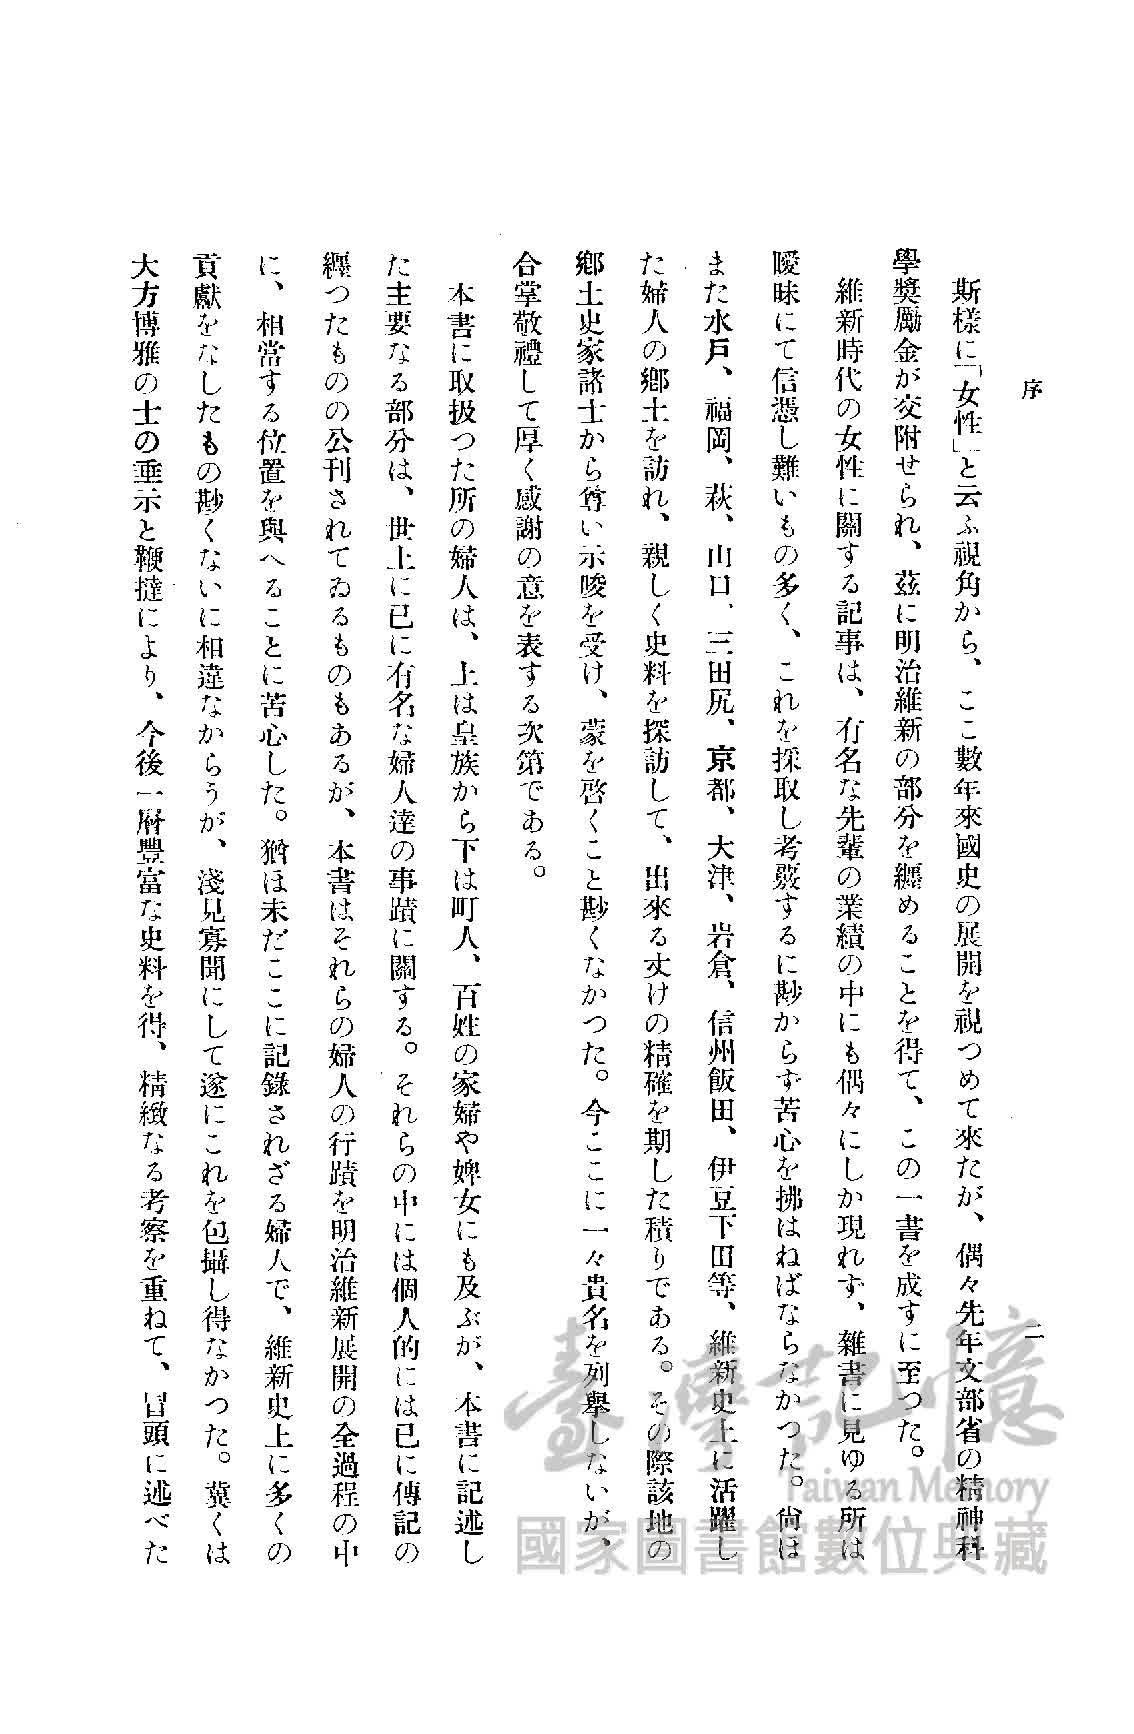 序
二
斯樣に「女性」と云ふ視角から、ここ數年來國史の展開を視つめて來たが、偶々先年文部省の精神科
學獎勵金が交附せられ、茲に明治維新の部分を纒めることを得て、この一書を成すに至つた。
維新時代の女性に關する記事は、有名な先輩の業績の中にも偶々にしか現れず、雜書に見ゆる所は
曖昧にて信憑し難いもの多く、これを採取し考覈するに尠からず苦心を拂はねばならなかつた。尙ほ
また水戶、福岡、萩、山口、三田尻、京都、大津、岩倉、信州飯田、伊豆下田等、維新史上に活躍し
た婦人の鄕土を訪れ、親しく史料を探訪して、出來る丈けの精確を期した積りである。その際該地の
鄕土史家諸士から尊い示唆を受け、蒙を啓くこと尠くなかつた。今ここに一々貴名を列擧しないが、
合掌敬禮して厚く感謝の意を表する次第である。
本書に取扱つた所の婦人は、上は皇族から下は町人、百姓の家婦や婢女にも及ぶが、本書に記述し
た主要なる部分は、世上に已に有名な婦人達の事蹟に關する。それらの中には個人的には已に傳記の
纒つたものの公刊されてゐるものもあるが、本書はそれらの婦人の行蹟を明治維新展開の全過程の中
に、相當する位置を與へることに苦心した。猶ほ未だここに記錄されざる婦人で、維新史上に多くの
貢獻をなしたもの尠くないに相違なからうが、淺見寡聞にして遂にこれを包攝し得なかつた。冀くは
大方博雅の士の垂示と鞭撻により、今後一層豐富な史料を得、精緻なる考察を重ねて、冒頭に述べた
臺灣記憶
Taiwan Memory
國家圖書館數位典藏